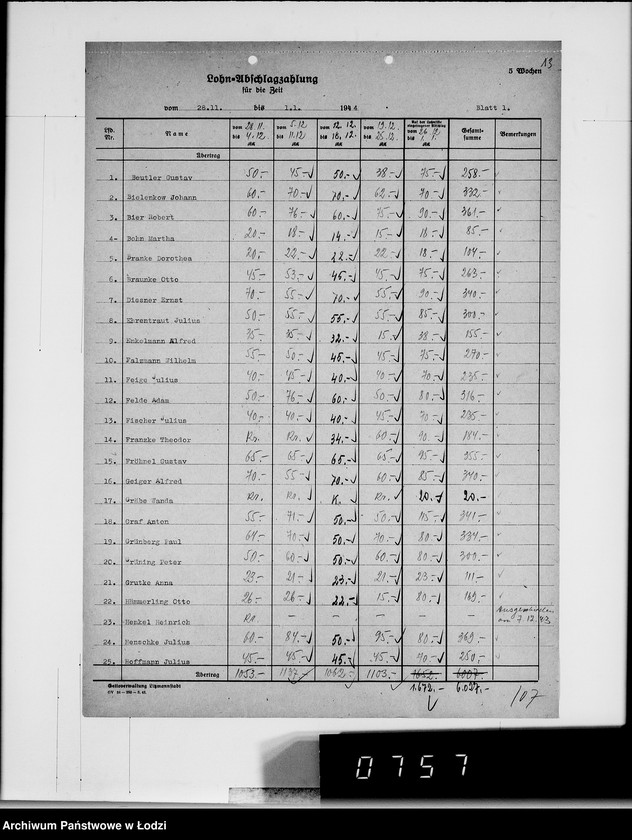 13
Lohn-Abschlagzahlung
5 Wochen
für die Zeit
vom 28.11. bis 1.1. 1944 Blatt 1.
Lfd. Nr. Name vom 28.11. bis 4.12. vom 5.12 bis 11.12 vom 12.12. bis 18.12. vom 19.12. bis 25.12. vom 26.12 bis 1.1. Gesamt-summe Bemerkungen
Übertrag
1. Beutler Gustav 50.- 45.- 50.- 38.- 75.- 258.-
2. Bielenkow Johann 60.- 70.- 70.- 62.- 70.- 332.-
3. Bier Robert 60.- 76.- 60.- 75.- 90.- 361.-
4. Bohm Martha 20.- 18.- 14.- 15.- 18.- 85.-
5. Dranke Dorothea 20.- 22.- 22.- 22.- 18.- 104.-
6. Braunke Otto 45.- 53.- 45.- 45.- 75.- 263.-
7. Diesner Ernst 70.- 55.- 70.- 55.- 90.- 340.-
8. Ehrentraut Julius 50.- 55.- 55.- 55.- 85.- 300.-
9. Enkelmann Alfred 35.- 35.- 32.- 15.- 38.- 155.-
10. Falzmann Wilhelm 55.- 50.- 45.- 45.- 75.- 270.-
11. Feige Julius 40.- 45.- 40.- 40.- 70.- 235.-
12. Felde Adam 50.- 76.- 60.- 50.- 80.- 316.-
13. Fischer Julius 40.- 40.- 40.- 45.- 70.- 235.-
14. Franzke Theodor Kr. Kr. 34.- 60.- 90.- 184.-
15. Frühmel Gustav 65.- 65.- 65.- 65.- 95.- 355.-
16. Geiger Alfred 70.- 55.- 70.- 60.- 85.- 340.-
17. Gräbe Wanda Kr. Kr. K. Kr. 20.- 20.-
18. Graf Anton 55.- 71.- 50.- 50.- 115.- 341.-
19. Grünberg Paul 64.- 70.- 50.- 70.- 80.- 334.-
20. Grüning Peter 50.- 60.- 50.- 60.- 80.- 300.-
21. Grutke Anna 23.- 21.- 23.- 21.- 23.- 111.-
22. Hämmerling Otto 26.- 26.- 22.- 15.- 80.- 169.-
23. Henkel Heinrich Kr. - - - - - Ausgeschieden am 7.12.43
24. Henschke Julius 60.- 84.- 50.- 95.- 80.- 369.-
25. Hoffmann Julius 45.- 45.- 45.- 45.- 70.- 250.-
Übertrag 1053.- 1137.- 1062.- 1103.-
1.672.- 6.027.-
Gettoverwaltung Litzmannstadt
107
0757
Archiwum Państwowe w Łodzi